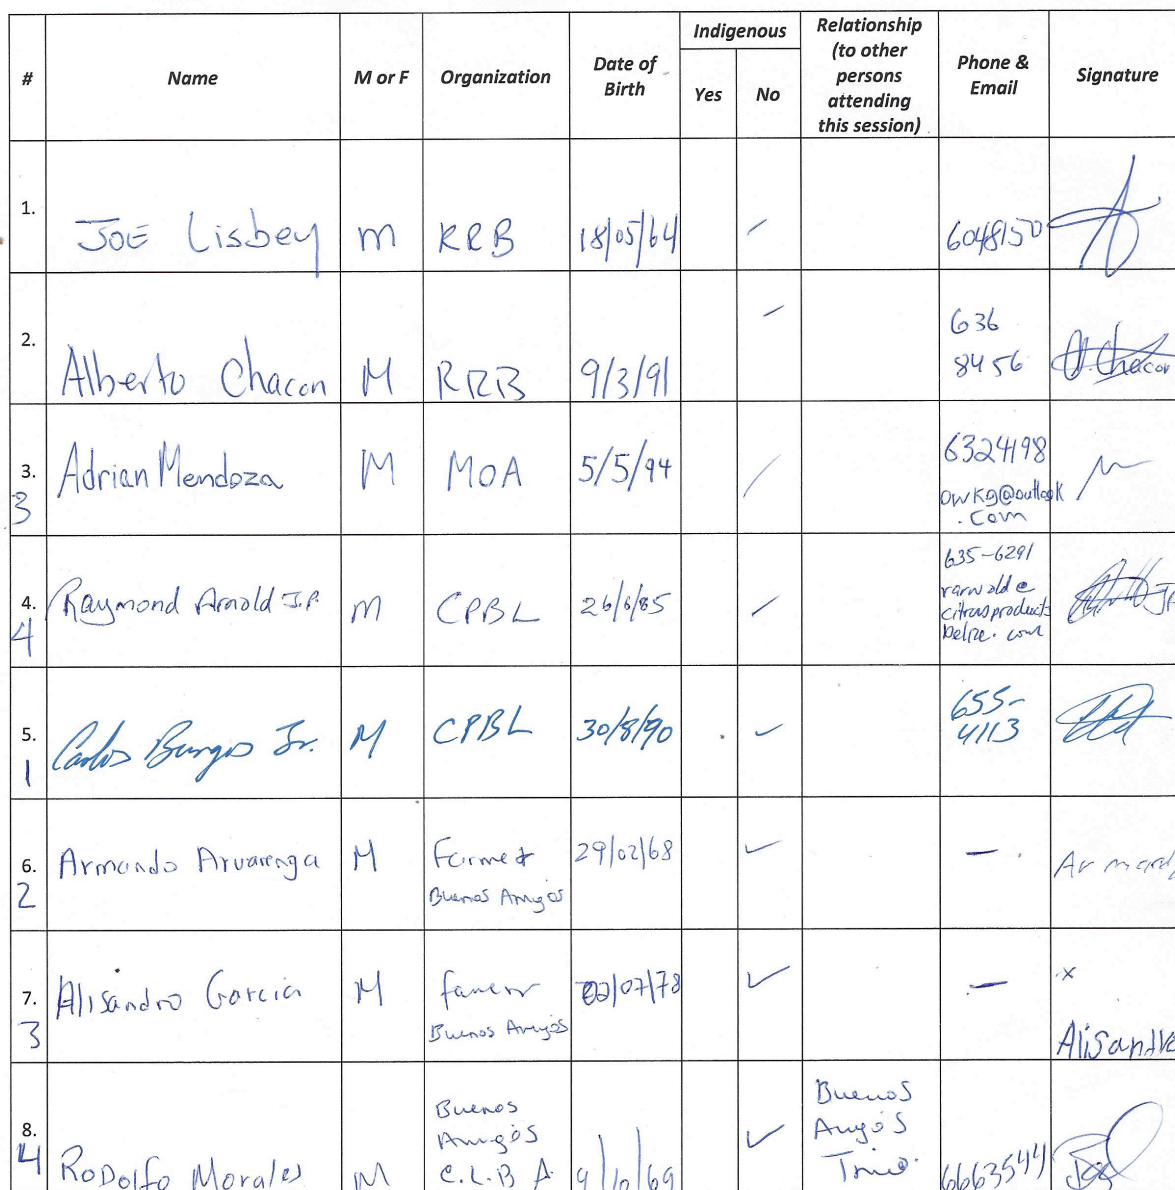 # Name M or F Organization Date of Birth Indigenous Yes No Relationship (to other persons attending this session) Phone & Email Signature
1. JOE Lisbey m RRB 18/05/64 6048150
2. Alberto Chacon M RRB 9/3/91 636 8456 A. Chacon
3. 3 Adrian Mendoza M MOA 5/5/94 6324198 owkg@outlook.com
4. 4 Raymond Arnold J.P. m CPBL 26/6/85 635-6291 rarnold@citrusproductsbelize.com
5. 1 Carlos Burgos Jr. M CPBL 30/8/90 655-4113
6. 2 Armando Arvarenga M Farmer Buenos Amigos 29/02/68 — Armand
7. 3 Alisandro Garcia M farmer Buenos Amigos 02/07/78 — x Alisandro
8. 4 RoDolfo Morales M Buenos Amigos C.L.B A 9/10/69 Buenos Amigos 6663544